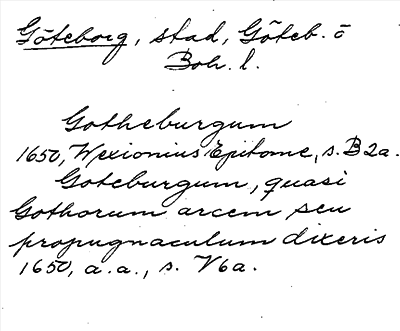 Göteborg, stad, Göteb. o
Boh. l.
Gotheburgum
1650, Wexionius Epitome, s. B2a.
Goteburgum, quasi
Gothorum arcem seu
propugnaculum dixeris
1650, a.a., s. V6a.